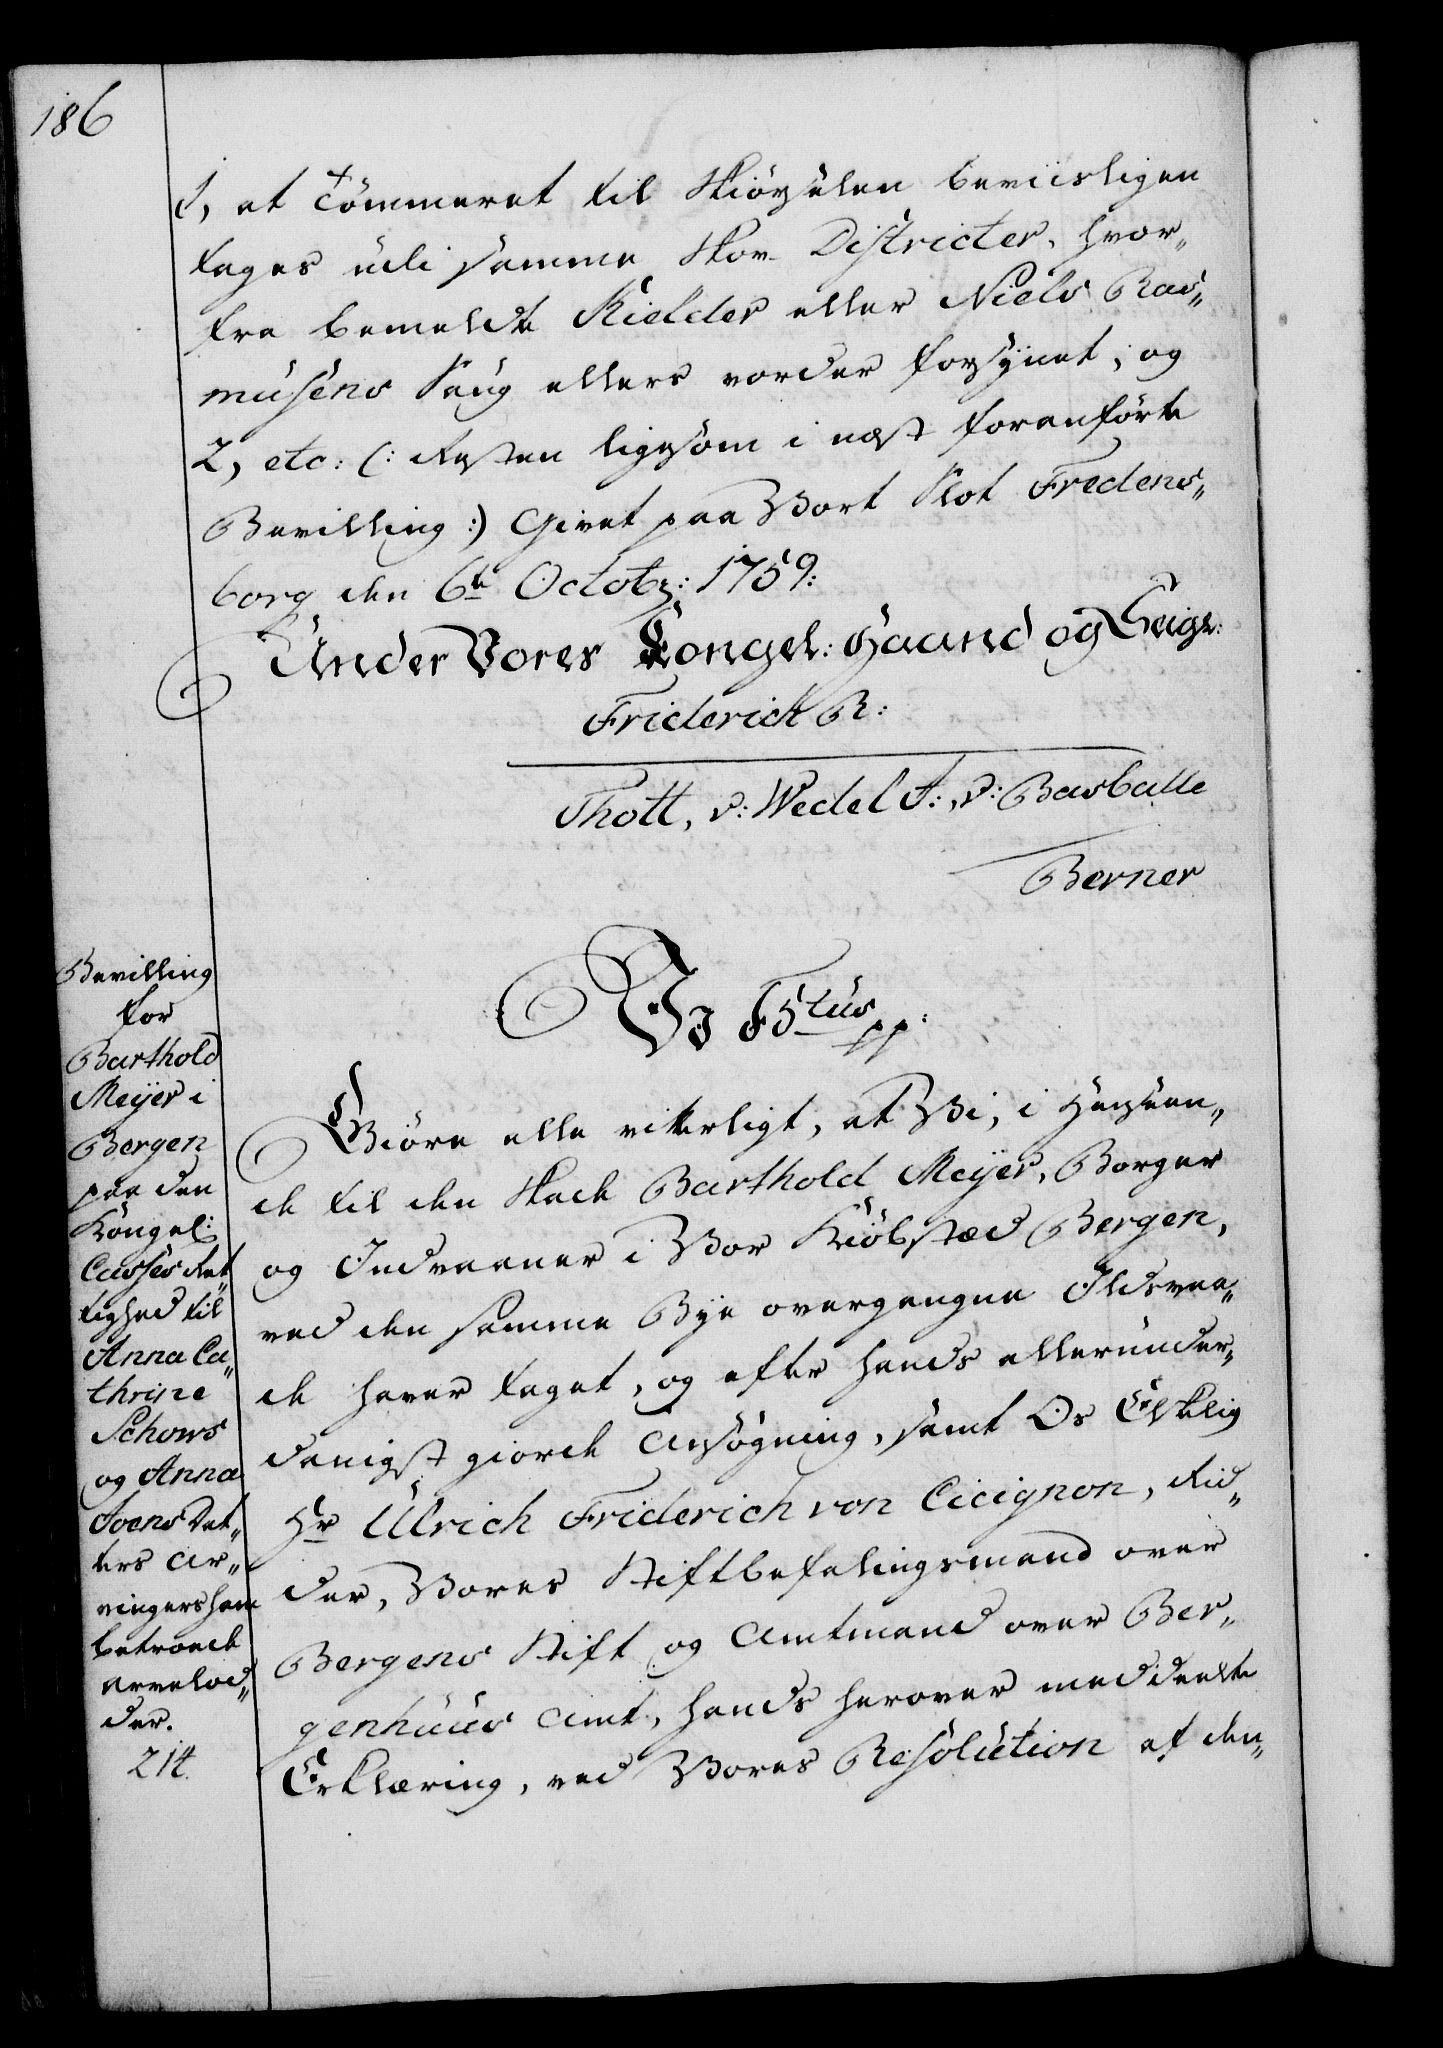 186
1, at Tömmeret til Skiörselen beviisligen
tages udi samme Skov-Districter, hvor„
fra bemeldte Kielder eller Niels Ras„
musens Saug ellers vorder forsÿnet; og
2, etc: (: Resten ligesom i næst foranförte
Bevilling :) Givet paa Vort Slot Fredens„
borg den 6te Octobr: 1759:
Under Vores Kongel: Haand og Seigl:
Friderich R:
Thott, v: Wedel F:, v: Barballe
Berner
Bevilling
for
Barthold
Meÿer i
Bergen
paa den
Kongel:
Casses Ret„
tighed til
Anna Ca„
thrine
Schows
og Anna
Ivens Dat„
ters Ar„
vingers ham
betroede
arvelod„
der.
214.
Wi F5tus pp:
Giöre alle vitterligt, at Vi, i Henseen„
de til den Skade Barthold Meÿer, Borger
og Indvaaner i Vor Kiöbstæd Bergen,
ved den samme Bÿe overgangne Ildsvaa„
de haver taget, og efter hands allerunder„
danigst giorde Ansögning, samt Os Elskelig
Hr Ulrich Friderich von Cicignon, Rid„
der, Vores Stiftbefalingsmand over
Bergens Stift og Amtmand over Ber„
genhuus Amt, hands herover meddeelte
Erklæring, ved Vores Resolution af den„